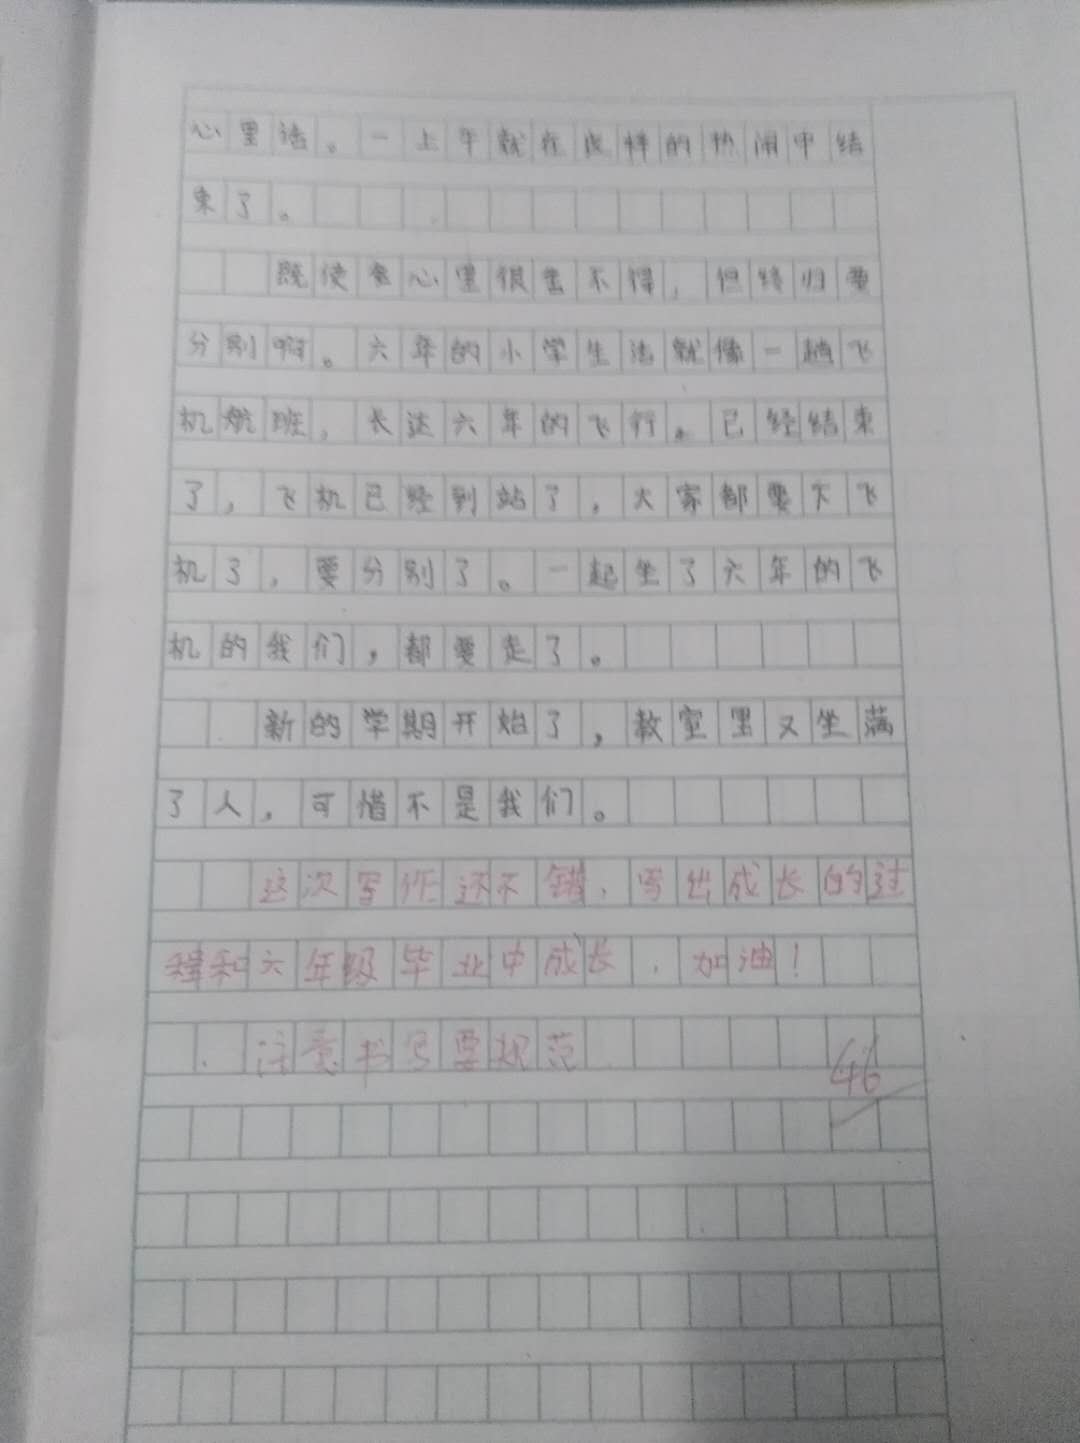 心里话。一上午就在这样的热闹中结
束了。
既使在心里很舍不得，但终归要
分别啊。六年的小学生活就像一趟飞
机航班，长达六年的飞行。已经结束
了，飞机已经到站了，大家都要下飞
机了，要分别了。一起坐了六年的飞
机的我们，都要走了。
新的学期开始了，教室里又坐满
了人，可惜不是我们。
这次写作还不错，写出成长的过
程和六年级毕业中成长，加油！
注意书写要规范
46